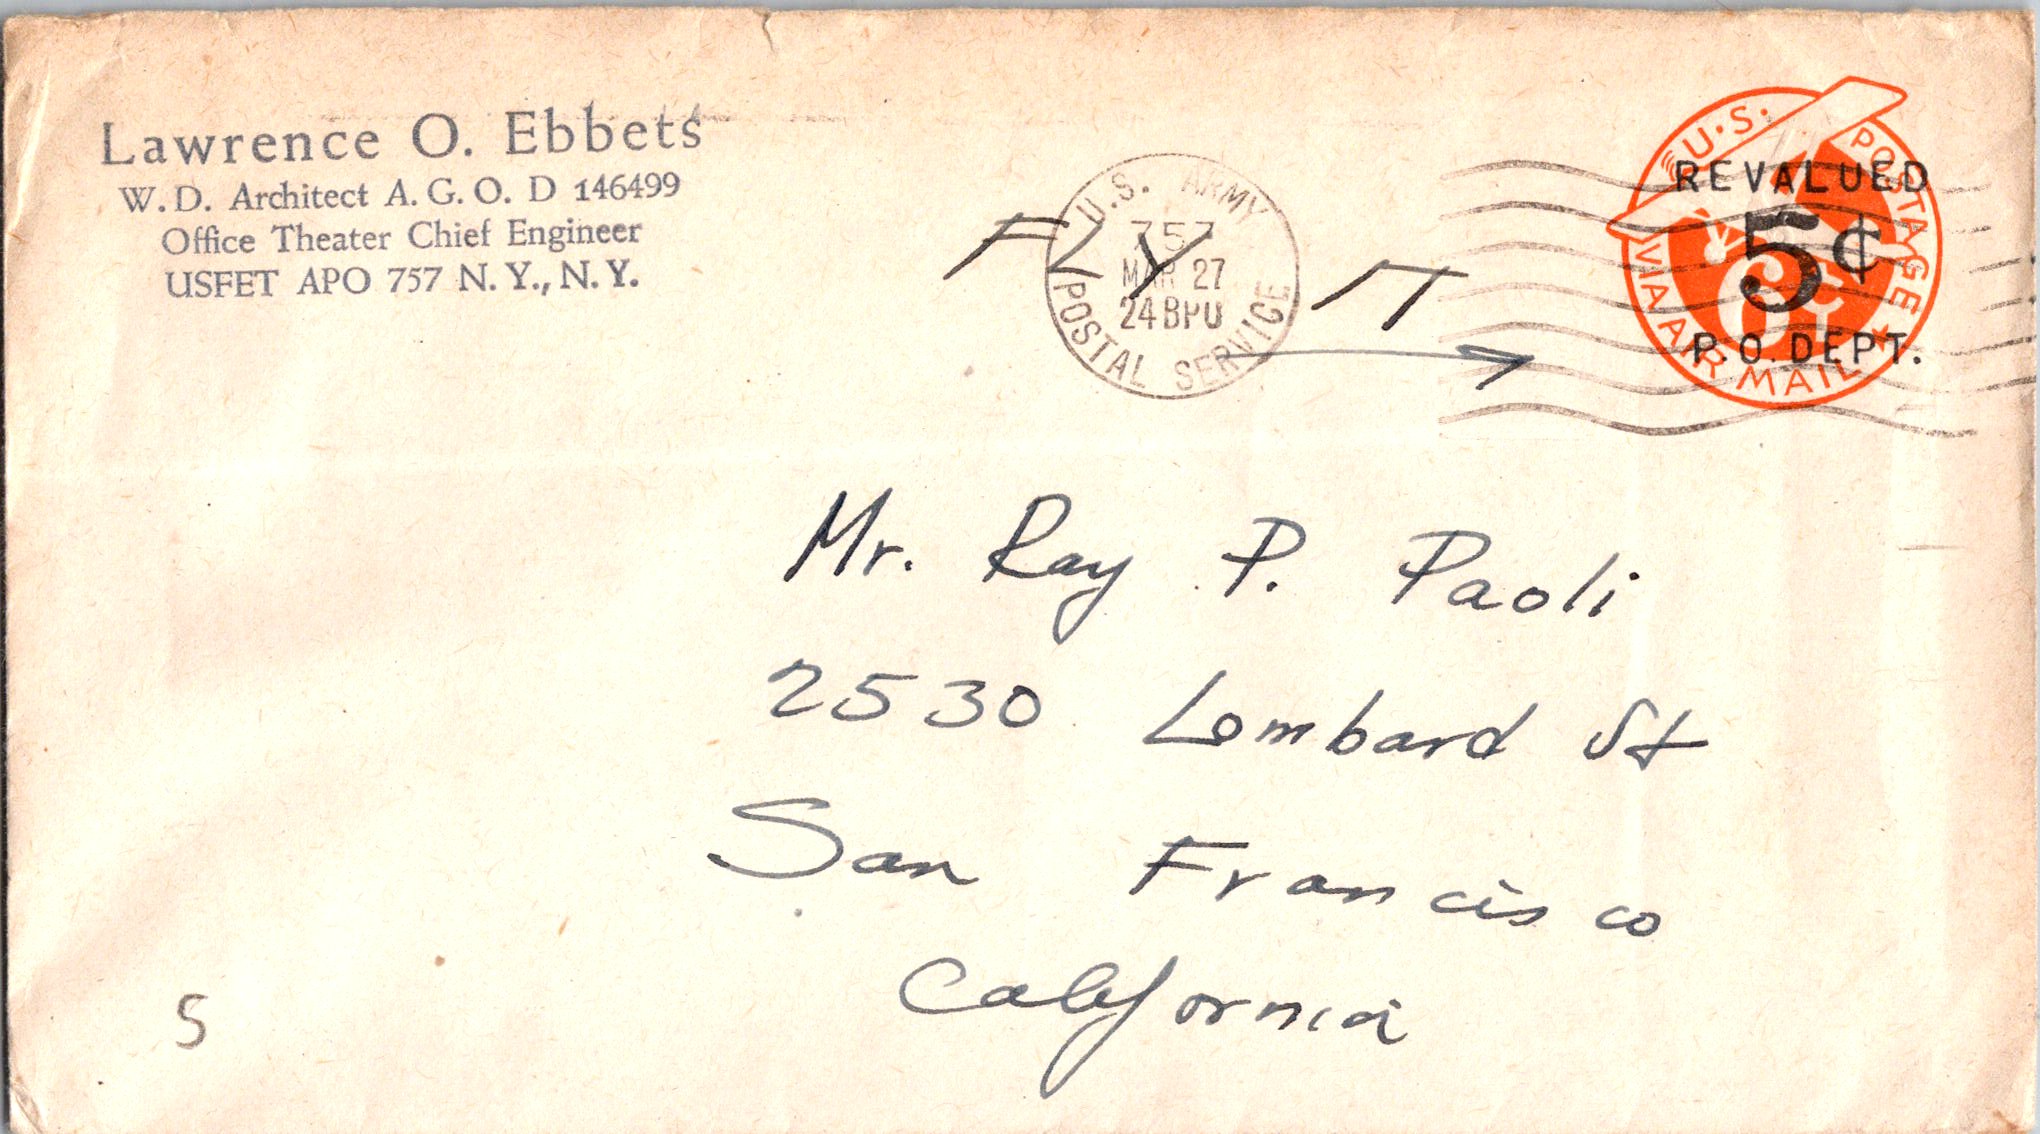 Lawrence O. Ebbets
W. D. Architect A. G. O. D 146499
Office Theater Chief Engineer
USFET APO 757 N. Y., N. Y.
FLY IT
U.S. ARMY
757
MAR 27
24BPU
POSTAL SERVICE
U.S. POSTAGE
REVALUED
5¢
6¢
P.O. DEPT.
VIA AIR MAIL
Mr. Ray P. Paoli
2530 Lombard St
San Francisco
California
5